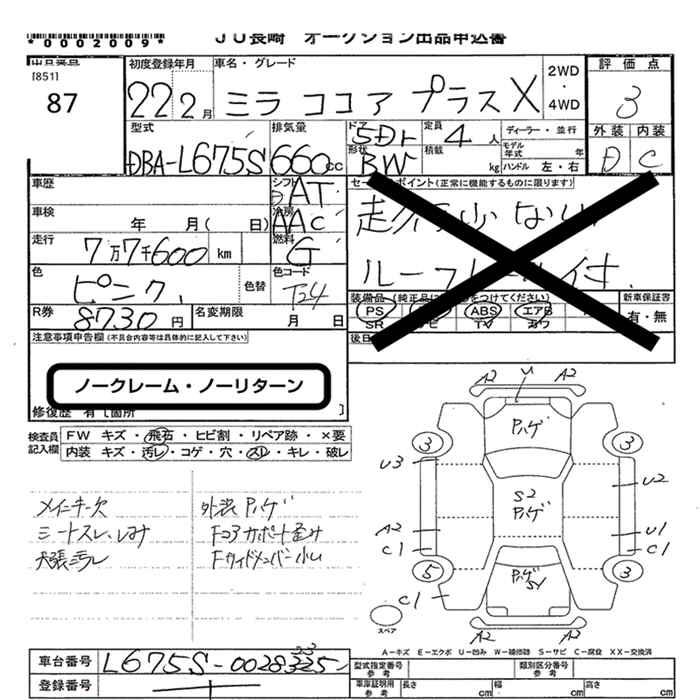 *0002009*
JU長崎 オークション出品申込書
[851]
87
初度登録年月
22 2月
車名・グレード
ミラ ココア プラス X
2WD
・
4WD
評価点
3
外装 内装
D C
型式
DBA-L675S
排気量
660cc
ドア
5Dr
形状
BW
定員
4人
積載
kg
ディーラー・並行
モデル
年式 年
ハンドル 左・右
車歴
シフト
AT
車検 年 月( 日)
冷房
AAC
走行
7万7千600km
燃料
G
色
ピンク
色替
色コード
T24
R券
8730円
名変期限
月 日
ルーフレール付
装備品
PS
ABS
エアB
SR
新車保証書
有・無
注意事項申告欄(不具合内容等は具体的に記入して下さい)
ノークレーム・ノーリターン
修復歴 有[箇所 ]
検査員
記入欄
FW キズ・飛石・ヒビ割・リペア跡・×要
内装 キズ・汚レ・コゲ・穴・スレ・キレ・破レ
メインキー欠
シートスレ、シミ
天張汚レ
外装Pハゲ
Fコアサポート歪み
Fサイドメンバー小ム
A2 U A2
Pハゲ
3 3
U3
U2
S2
Pハゲ
A2
C1
U1
C1
5 3
Pハゲ
S1
C1
スペア
A2 A2
A=キズ E=エクボ U=凹み W=補修跡 S=サビ C=腐食 XX=交換済
車台番号
L675S-0028325
23
登録番号
型式指定番号
参考
類別区分番号
参考
車庫証明用
参考
長さ cm
幅 cm
高さ cm